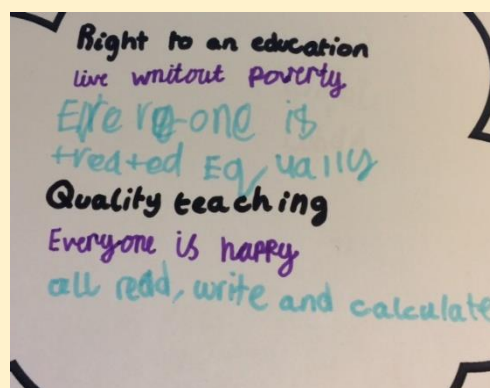 Right to an education
live wnitout poverty
Everyone is
treated Equally
Quality teaching
Everyone is happy
all read, write and calculate